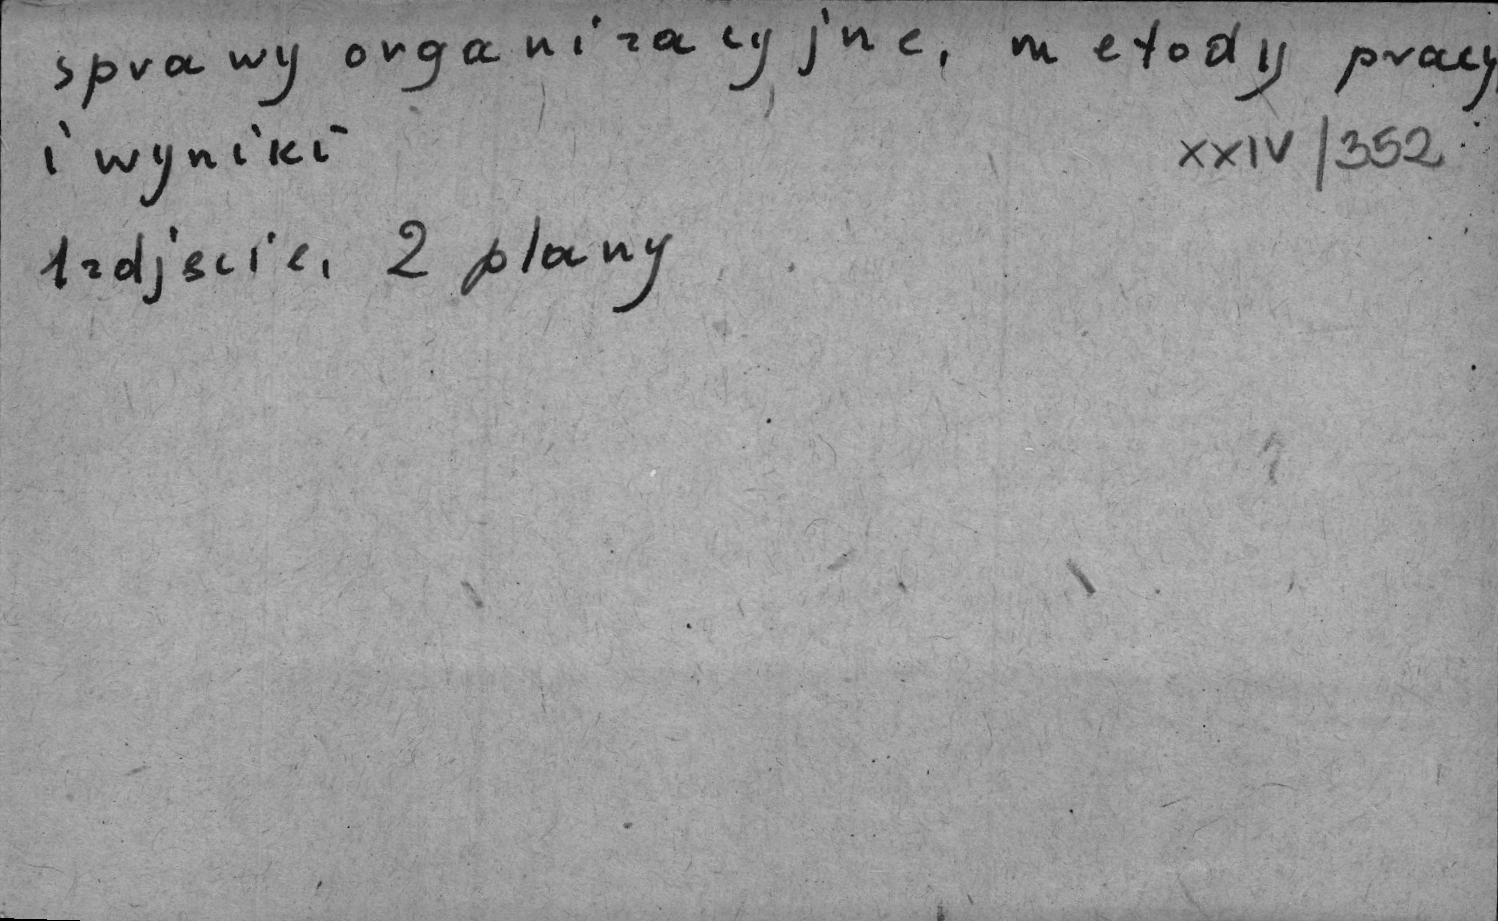 sprawy organizacyjne, metody pracy,
i wyniki XXIV/352
1 zdjęcie, 2 plany